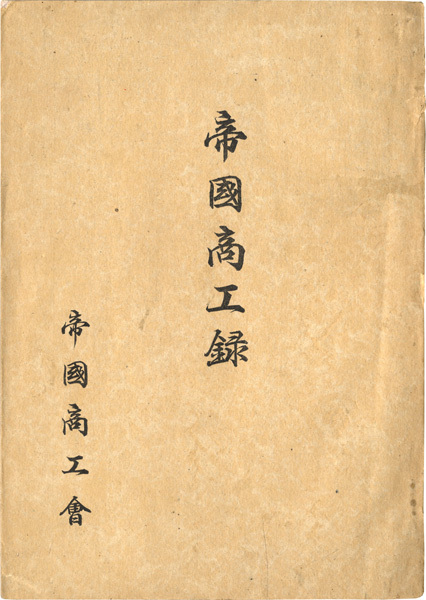 帝國商工録
帝國商工會